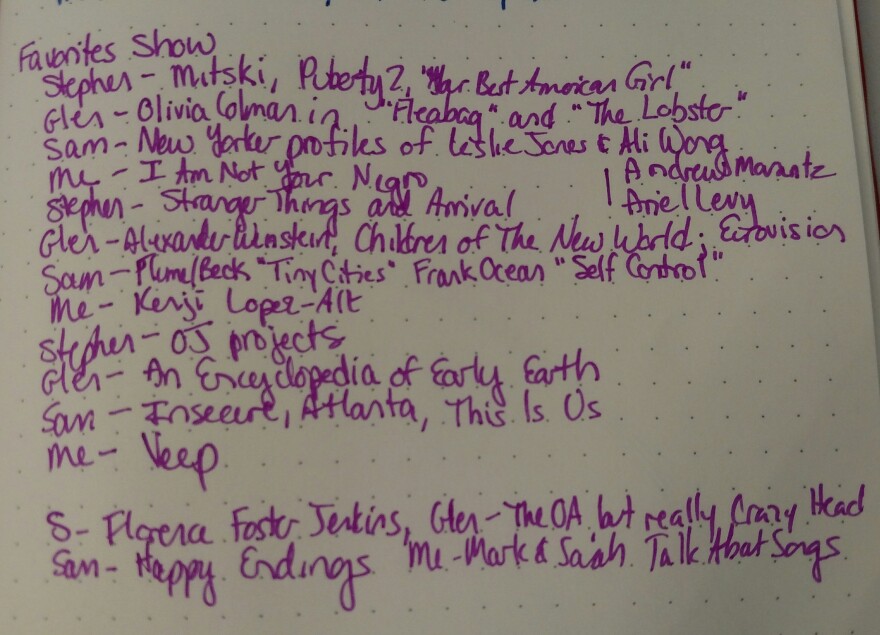 Favorites Show
Stephen - Mitski, Puberty 2, "Your Best American Girl"
Glen - Olivia Colman in "Fleabag" and "The Lobster"
Sam - New Yorker profiles of Leslie Jones & Ali Wong
Me - I Am Not Your Negro | Andrew Marantz
Stephen - Stranger Things and Arrival | Ariel Levy
Glen - Alexander Weinstein, Children of The New World; Eurovision
Sam - Plume/Beck "Tiny Cities" Frank Ocean "Self Control"
Me - Kenji Lopez-Alt
Stephen - OJ projects
Glen - An Encyclopedia of Early Earth
Sam - Insecure, Atlanta, This Is Us
Me - Veep
S - Florence Foster Jenkins, Glen - The OA but really Crazy Head
Sam - Happy Endings Me - Mark & Sarah Talk About Songs